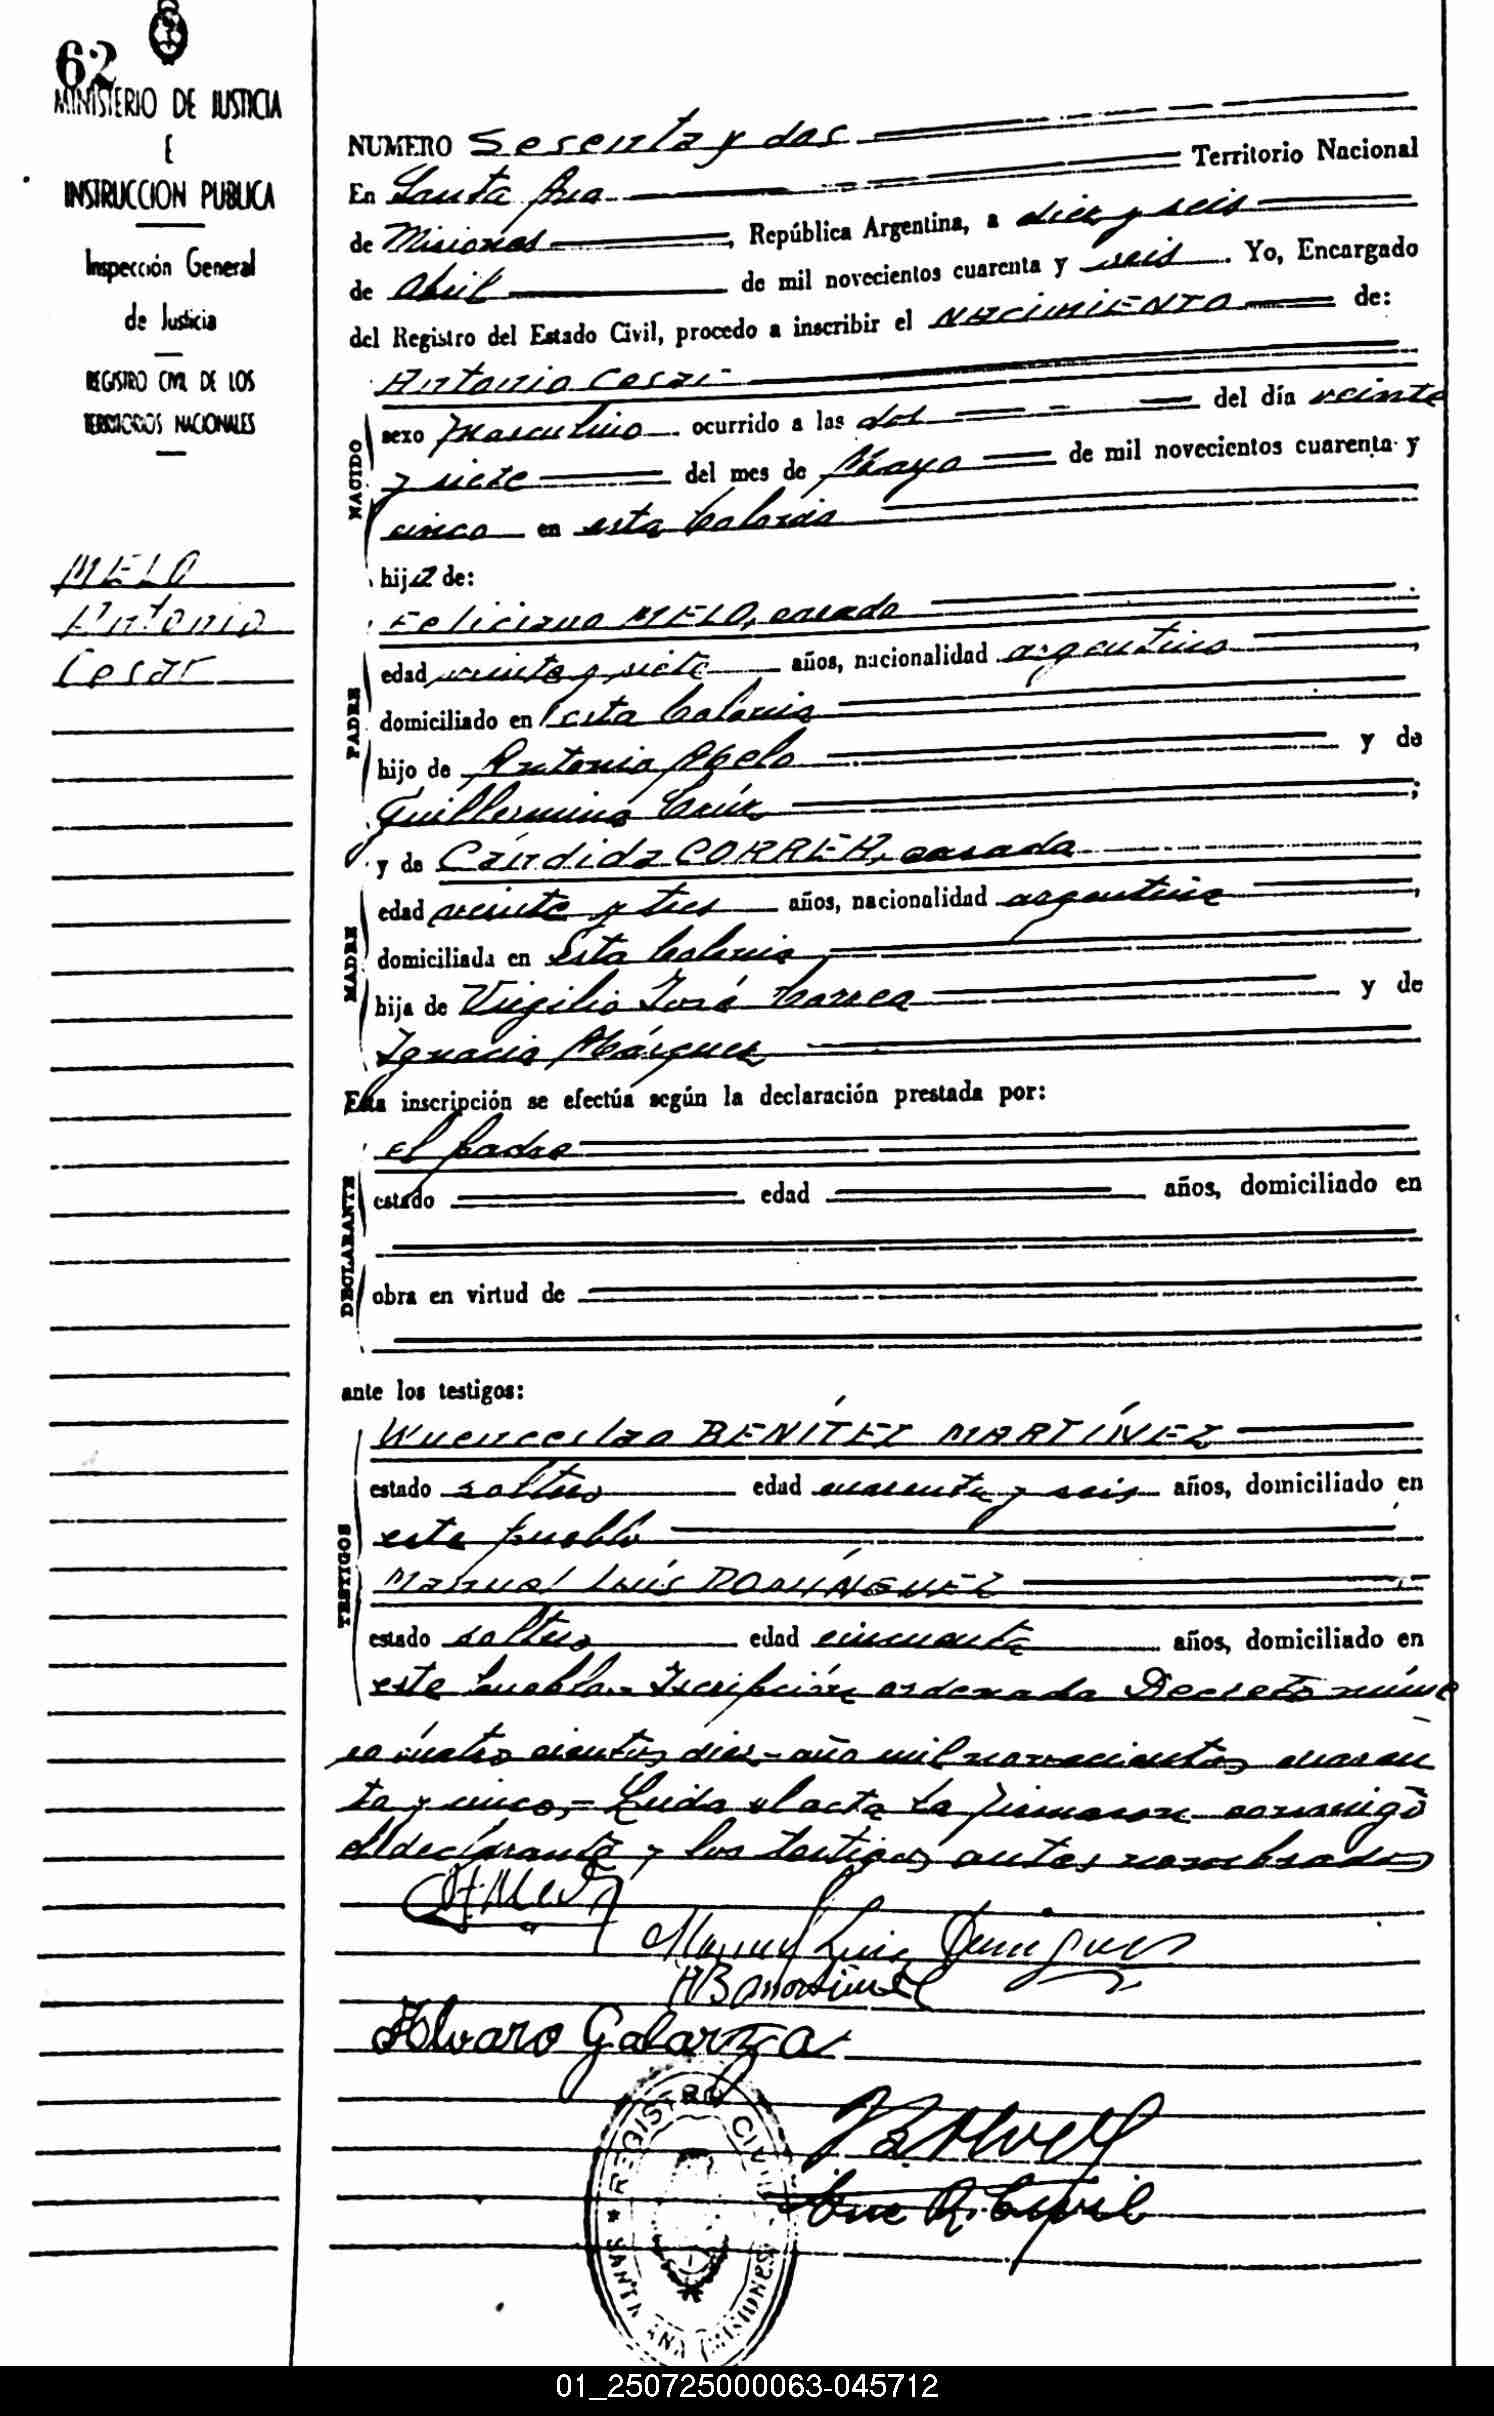 62
MINISTERIO DE JUSTICIA
E
INSTRUCCION PUBLICA
Inspección General
de Justicia
REGISTRO CIVIL DE LOS
TERRITORIOS NACIONALES
MELO
Antonio
Cesar
NUMERO Sesenta y dos
En Santa Ana Territorio Nacional
de Misiones, República Argentina, a diez y seis
de Abril de mil novecientos cuarenta y seis. Yo, Encargado
del Registro del Estado Civil, procedo a inscribir el NACIMIENTO de:
Antonio Cesar
NACIDO
sexo Masculino ocurrido a las dos del día veinte
y siete del mes de Mayo de mil novecientos cuarenta y
cinco en esta Colonia
hijo de:
Feliciano MELO, casado
PADRE
edad veinte y siete años, nacionalidad argentino,
domiciliado en esta Colonia
hijo de Antonio Melo y de
Guillermina;
y de Cándida CORREA, casada
MADRE
edad veinte y tres años, nacionalidad argentina,
domiciliada en esta Colonia
hija de Virgilio José Correa y de
Ignacia Márquez
Esta inscripción se efectúa según la declaración prestada por:
el padre
DECLARANTE
estado edad años, domiciliado en
obra en virtud de
ante los testigos:
Wuenceslao BENÍTEZ MARTÍNEZ
TESTIGOS
estado soltero edad cuarenta y seis años, domiciliado en
este pueblo
Manuel Luís DOMÍNGUEZ
estado soltero edad cincuenta años, domiciliado en
este pueblo.- Iscripción ordenada Decreto núme
ro cuatro cientos diez - año mil novecientos cuaren
ta y cinco,= Leida el acta la firmaron conmigo
el declarante y los testigos antes nombrados
Manuel Luis Dominguez
WB Martinez
Alvaro Galarza
REGISTRO CIVIL
* SANTA ANA (MISIONES)
Enc R. Civil
01_250725000063-045712